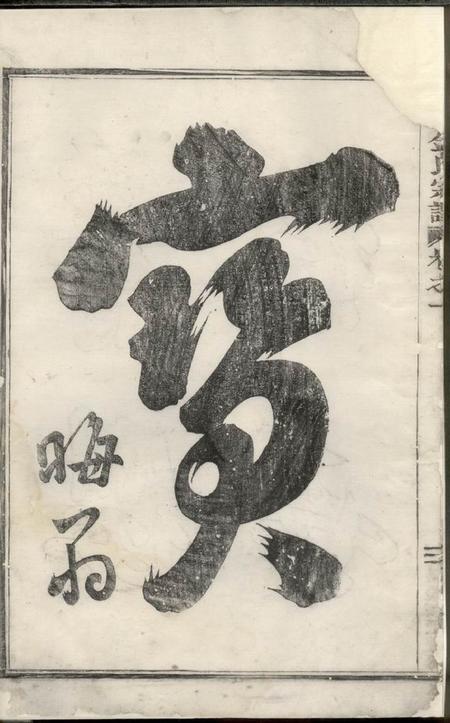 寶
晦翁
氏宗譜
卷之一
三